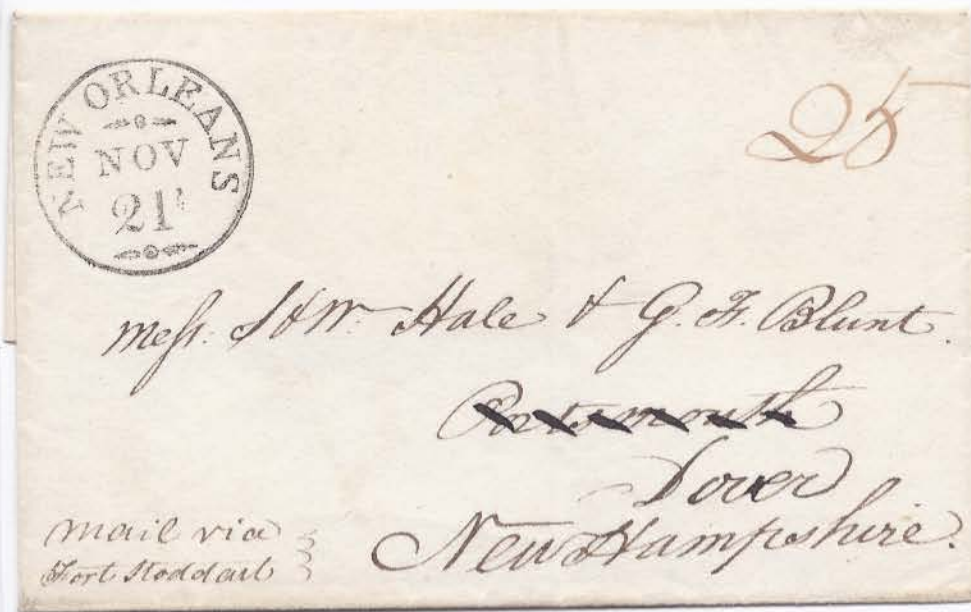 NEW ORLEANS
NOV
21
25
Mess. S & W. Hale & G. F. Blunt.
Portsmouth
Dover
New Hampshire.
Mail via
Fort Stoddart